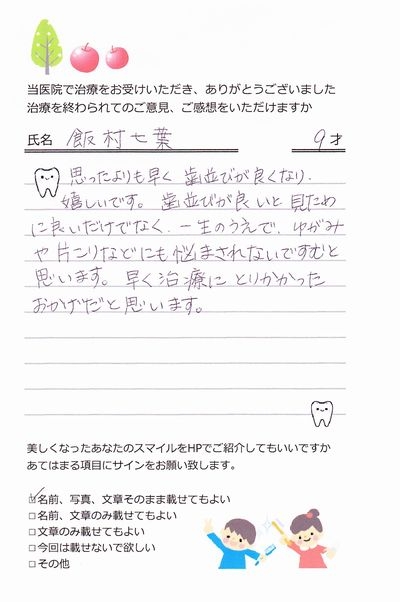 当医院で治療をお受けいただき、ありがとうございました
治療を終わられてのご意見、ご感想をいただけますか
氏名 飯村七葉 9才
思ったよりも早く歯並びが良くなり、
嬉しいです。歯並びが良いと見ため
に良いだけでなく、一生のうえで、ゆがみ
や片こりなどにも悩まされないですむと
思います。早く治療にとりかかった
おかげだと思います。
美しくなったあなたのスマイルをHPでご紹介してもいいですか
あてはまる項目にサインをお願い致します。
☑名前、写真、文章そのまま載せてもよい
□名前、文章のみ載せてもよい
□文章のみ載せてもよい
□今回は載せないで欲しい
□その他